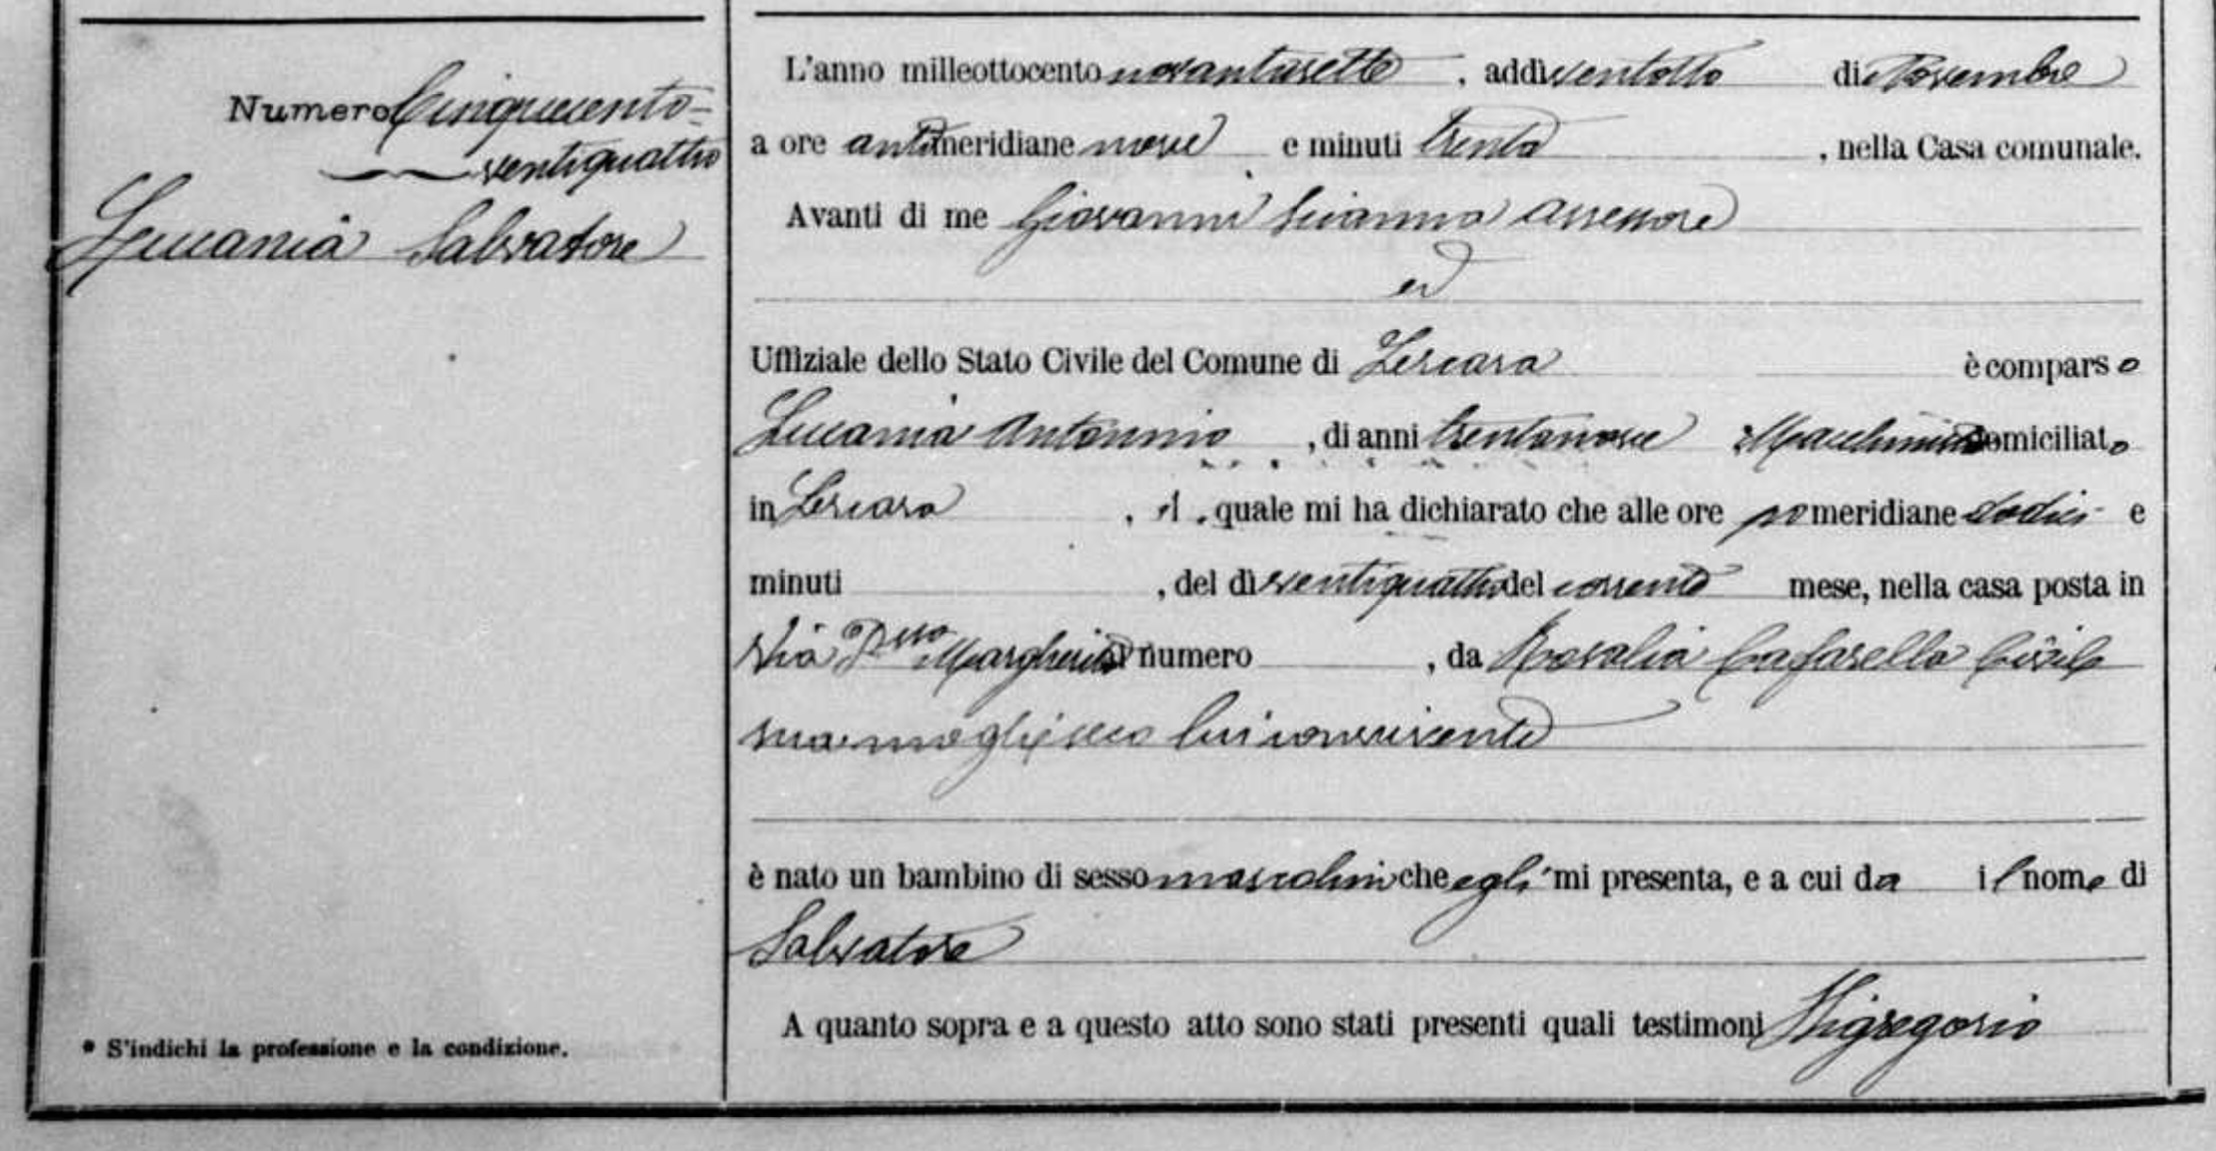 Numero Cinquecento=
ventiquattro
Lucania Salvatore
* S'indichi la professione e la condizione.
L'anno milleottocento novantasette, addì ventotto di Novembre
a ore antimeridiane nove e minuti trenta, nella Casa comunale.
Avanti di me Giovanni Scianna Assessore
ed
Uffiziale dello Stato Civile del Comune di Lercara è comparso
Lucania Antonino, di anni trentanove Macchinista domiciliato
in Lercara, il quale mi ha dichiarato che alle ore pomeridiane dodici e
minuti, del dì ventiquattro del corrente mese, nella casa posta in
Via Pssa Margherita numero, da Rosalia Cafarella Civile
sua moglie seco lui convivente
è nato un bambino di sesso mascolino che egli mi presenta, e a cui da il nome di
Salvatore
A quanto sopra e a questo atto sono stati presenti quali testimoni Digregorio